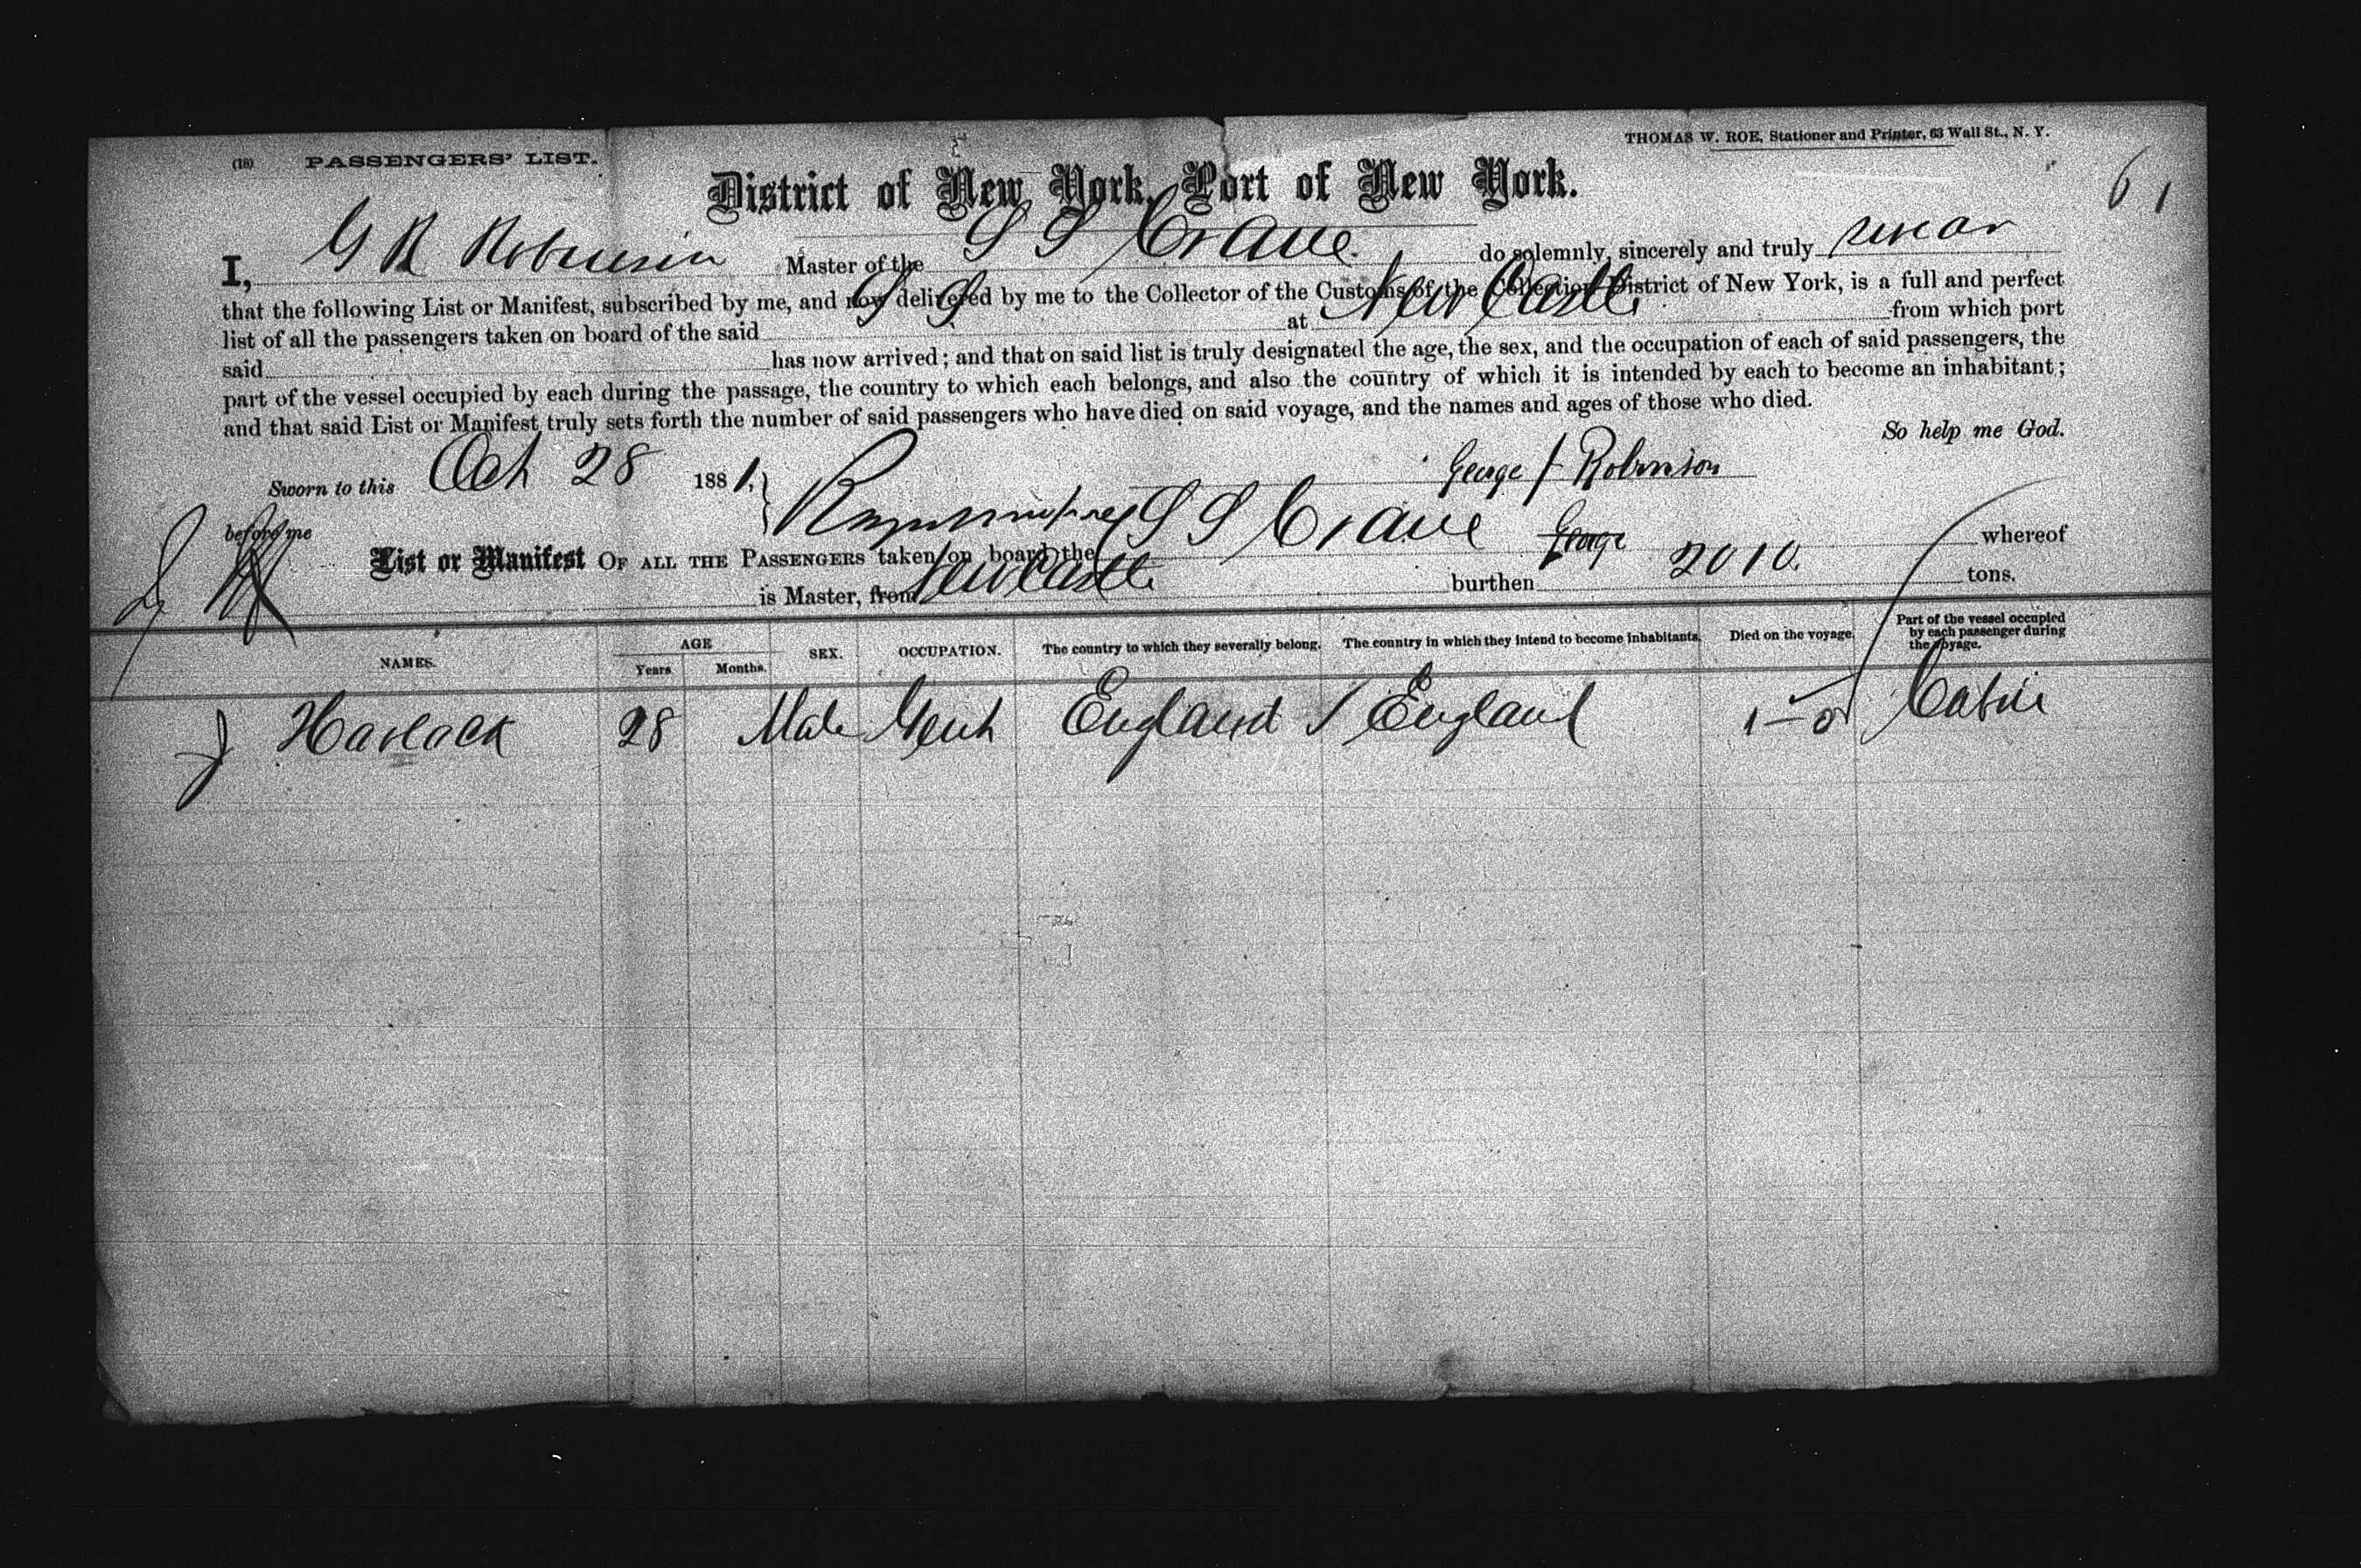 (18) PASSENGERS' LIST.
THOMAS W. ROE, Stationer and Printer, 63 Wall St., N. Y.
61
District of New York, Port of New York.
I, G R Robinson Master of the S S Crane do solemnly, sincerely and truly swear
that the following List or Manifest, subscribed by me, and now delivered by me to the Collector of the Customs of the Collection District of New York, is a full and perfect
list of all the passengers taken on board of the said S S at New Castle from which port
said has now arrived; and that on said list is truly designated the age, the sex, and the occupation of each of said passengers, the
part of the vessel occupied by each during the passage, the country to which each belongs, and also the country of which it is intended by each to become an inhabitant;
and that said List or Manifest truly sets forth the number of said passengers who have died on said voyage, and the names and ages of those who died.
So help me God.
Sworn to this Oct 28 1881. George Robinson
before me
List or Manifest OF ALL THE PASSENGERS taken on board the S S Crane George whereof
is Master, from Newcastle burthen 2010. tons.
NAMES. AGE Years. Months. SEX. OCCUPATION. The country to which they severally belong. The country in which they intend to become inhabitants. Died on the voyage. Part of the vessel occupied by each passenger during the voyage.
J Havlack 28 Male Gent England England Cabin